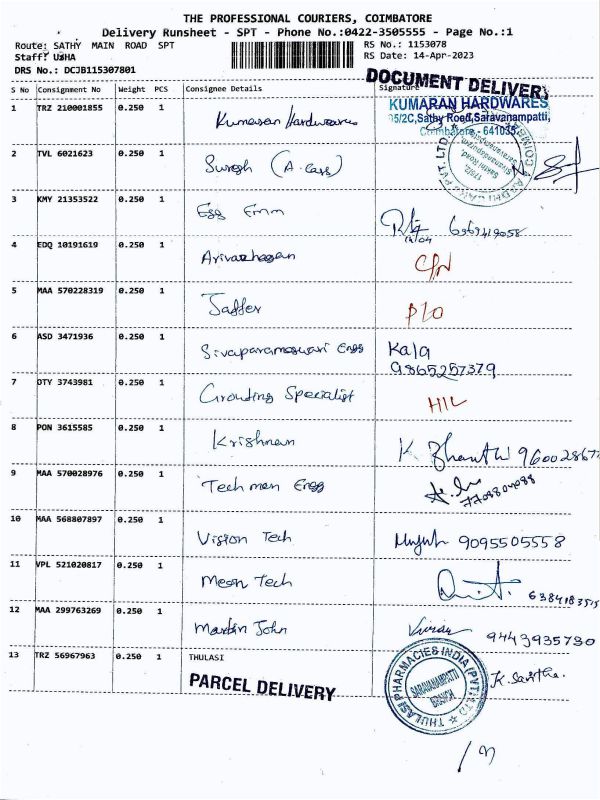 THE PROFESSIONAL COURIERS, COIMBATORE
Delivery Runsheet - SPT - Phone No.:0422-3505555 - Page No.:1
Route: SATHY MAIN ROAD SPT
RS No.: 1153078
Staff: USHA
RS Date: 14-Apr-2023
DRS No.: DCJB115307801
DOCUMENT DELIVERY
S No Consignment No Weight PCS Consignee Details Signature
KUMARAN HARDWARES
1 TRZ 210001855 0.250 1 Kumaran Hardwares
95/2C,Sathy Road,Saravanampatti,
Coimbatore - 641035.
2 TVL 6021623 0.250 1 Suresh (A. Cass)
3 KMY 21353522 0.250 1 Egg Emm
4 EDQ 10191619 0.250 1 Arivazhagan
5 MAA 570228319 0.250 1 Jaffer P/O
6 ASD 3471936 0.250 1 Sivaparameswari Engg Kala
9865257379
7 OTY 3743981 0.250 1 Grouting Specialist
8 PON 3615585 0.250 1 Krishnan
9 MAA 570028976 0.250 1 Techmen Engg
10 MAA 568807897 0.250 1 Vision Tech 9095505558
11 VPL 521020817 0.250 1 Meon Tech
12 MAA 299763269 0.250 1 Martin John 9443935730
13 TRZ 56967963 0.250 1 THULASI
THULASI PHARMACIES INDIA (PVT) LTD
SARAVANAMPATTI
BRANCH
PARCEL DELIVERY